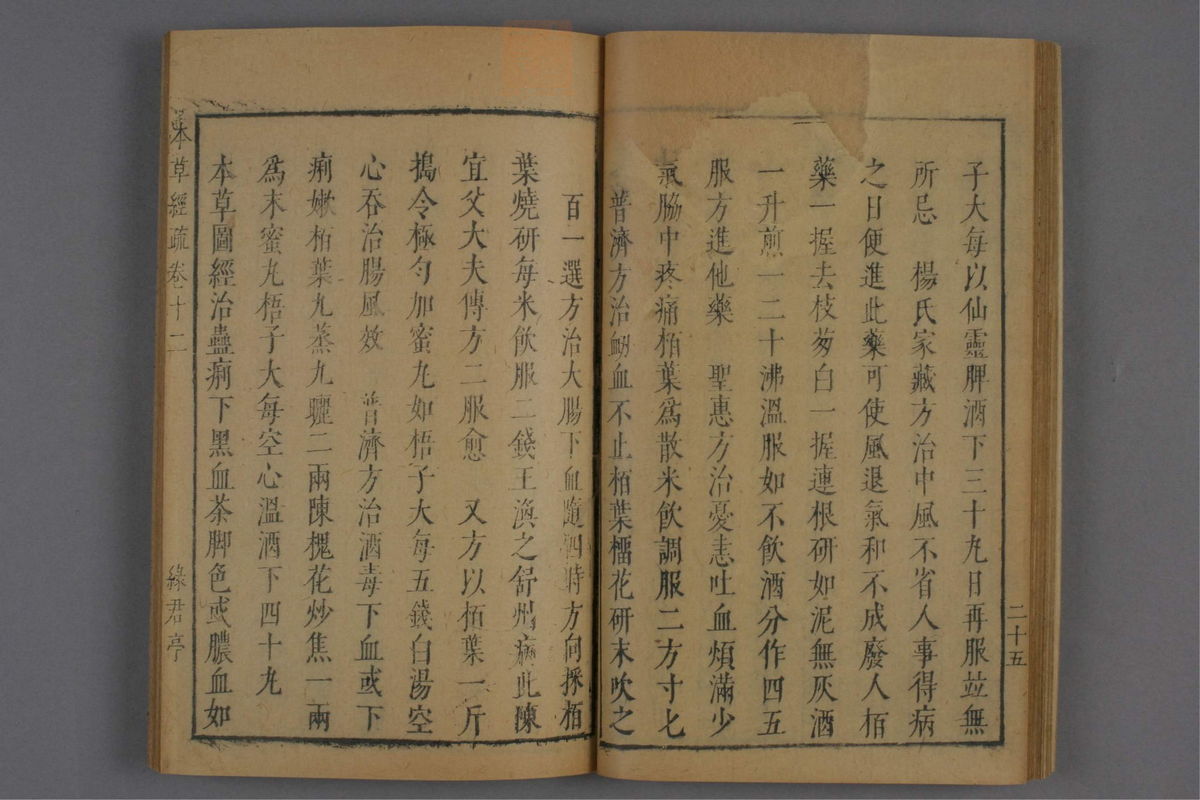 子大每以仙靈脾酒下三十九日再服並無
所忌　楊氏家藏方治中風不省人事得病
之日便進此藥可使風退氣和不成廢人栢
藥一握去枝葱白一握連根研如泥無灰酒
一升煎一二十沸溫服如不飲酒分作四五
服方進他藥　聖惠方治憂恚吐血煩滿少
氣胸中疼痛栢葉爲散米飮調服二方寸七
普濟方治衂血不止栢葉榴花研末吹之
二十五
百一選方治大腸下血隨四時方向採栢
葉燒研每米飮服二錢王渙之舒州病此陳
宜父大夫傳方二服愈　又方以栢葉一斤
搗令極勻加蜜九如梧子大每五錢白湯空
心吞治腸風效　普濟方治酒毒下血或下
痢嫩栢葉九蒸九曬二兩陳槐花炒焦一兩
爲末蜜九梧子大每空心溫酒下四十九
本草圖經治蠱痢下黑血茶脚色或膿血如
本草經疏卷十二
綠君亭